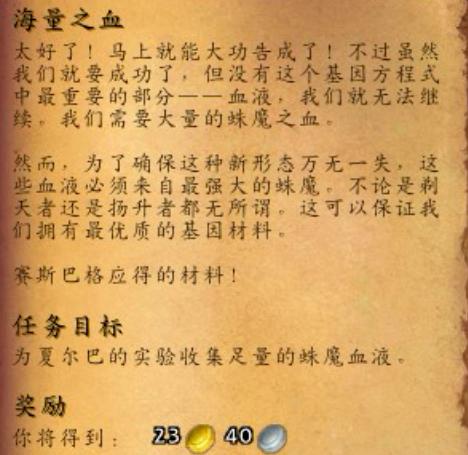 海量之血
太好了！马上就能大功告成了！不过虽然
我们就要成功了，但没有这个基因方程式
中最重要的部分——血液，我们就无法继
续。我们需要大量的蛛魔之血。
然而，为了确保这种新形态万无一失，这
些血液必须来自最强大的蛛魔。不论是剃
天者还是扬升者都无所谓。这可以保证我
们拥有最优质的基因材料。
赛斯巴格应得的材料！
任务目标
为夏尔巴的实验收集足量的蛛魔血液。
奖励
你将得到： 23 40